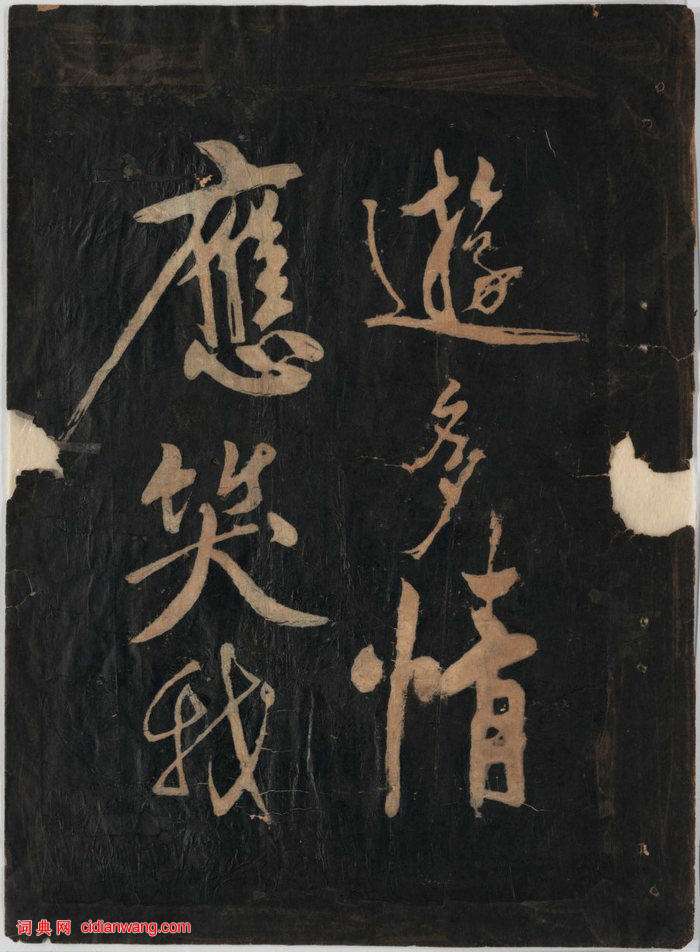 遊多情
應笑我
词典网 cidianwang.com